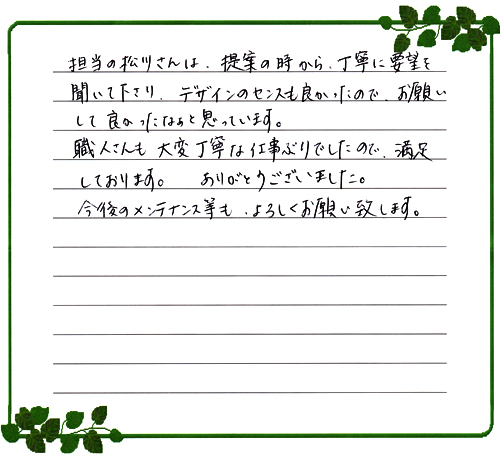 担当の松川さんは、提案の時から、丁寧に要望を
聞いて下さり、デザインのセンスも良かったので、お願い
して良かったなぁと思っています。
職人さんも大変丁寧な仕事ぶりでしたので、満足
しております。 ありがとうございました。
今後のメンテナンス等も、よろしくお願い致します。